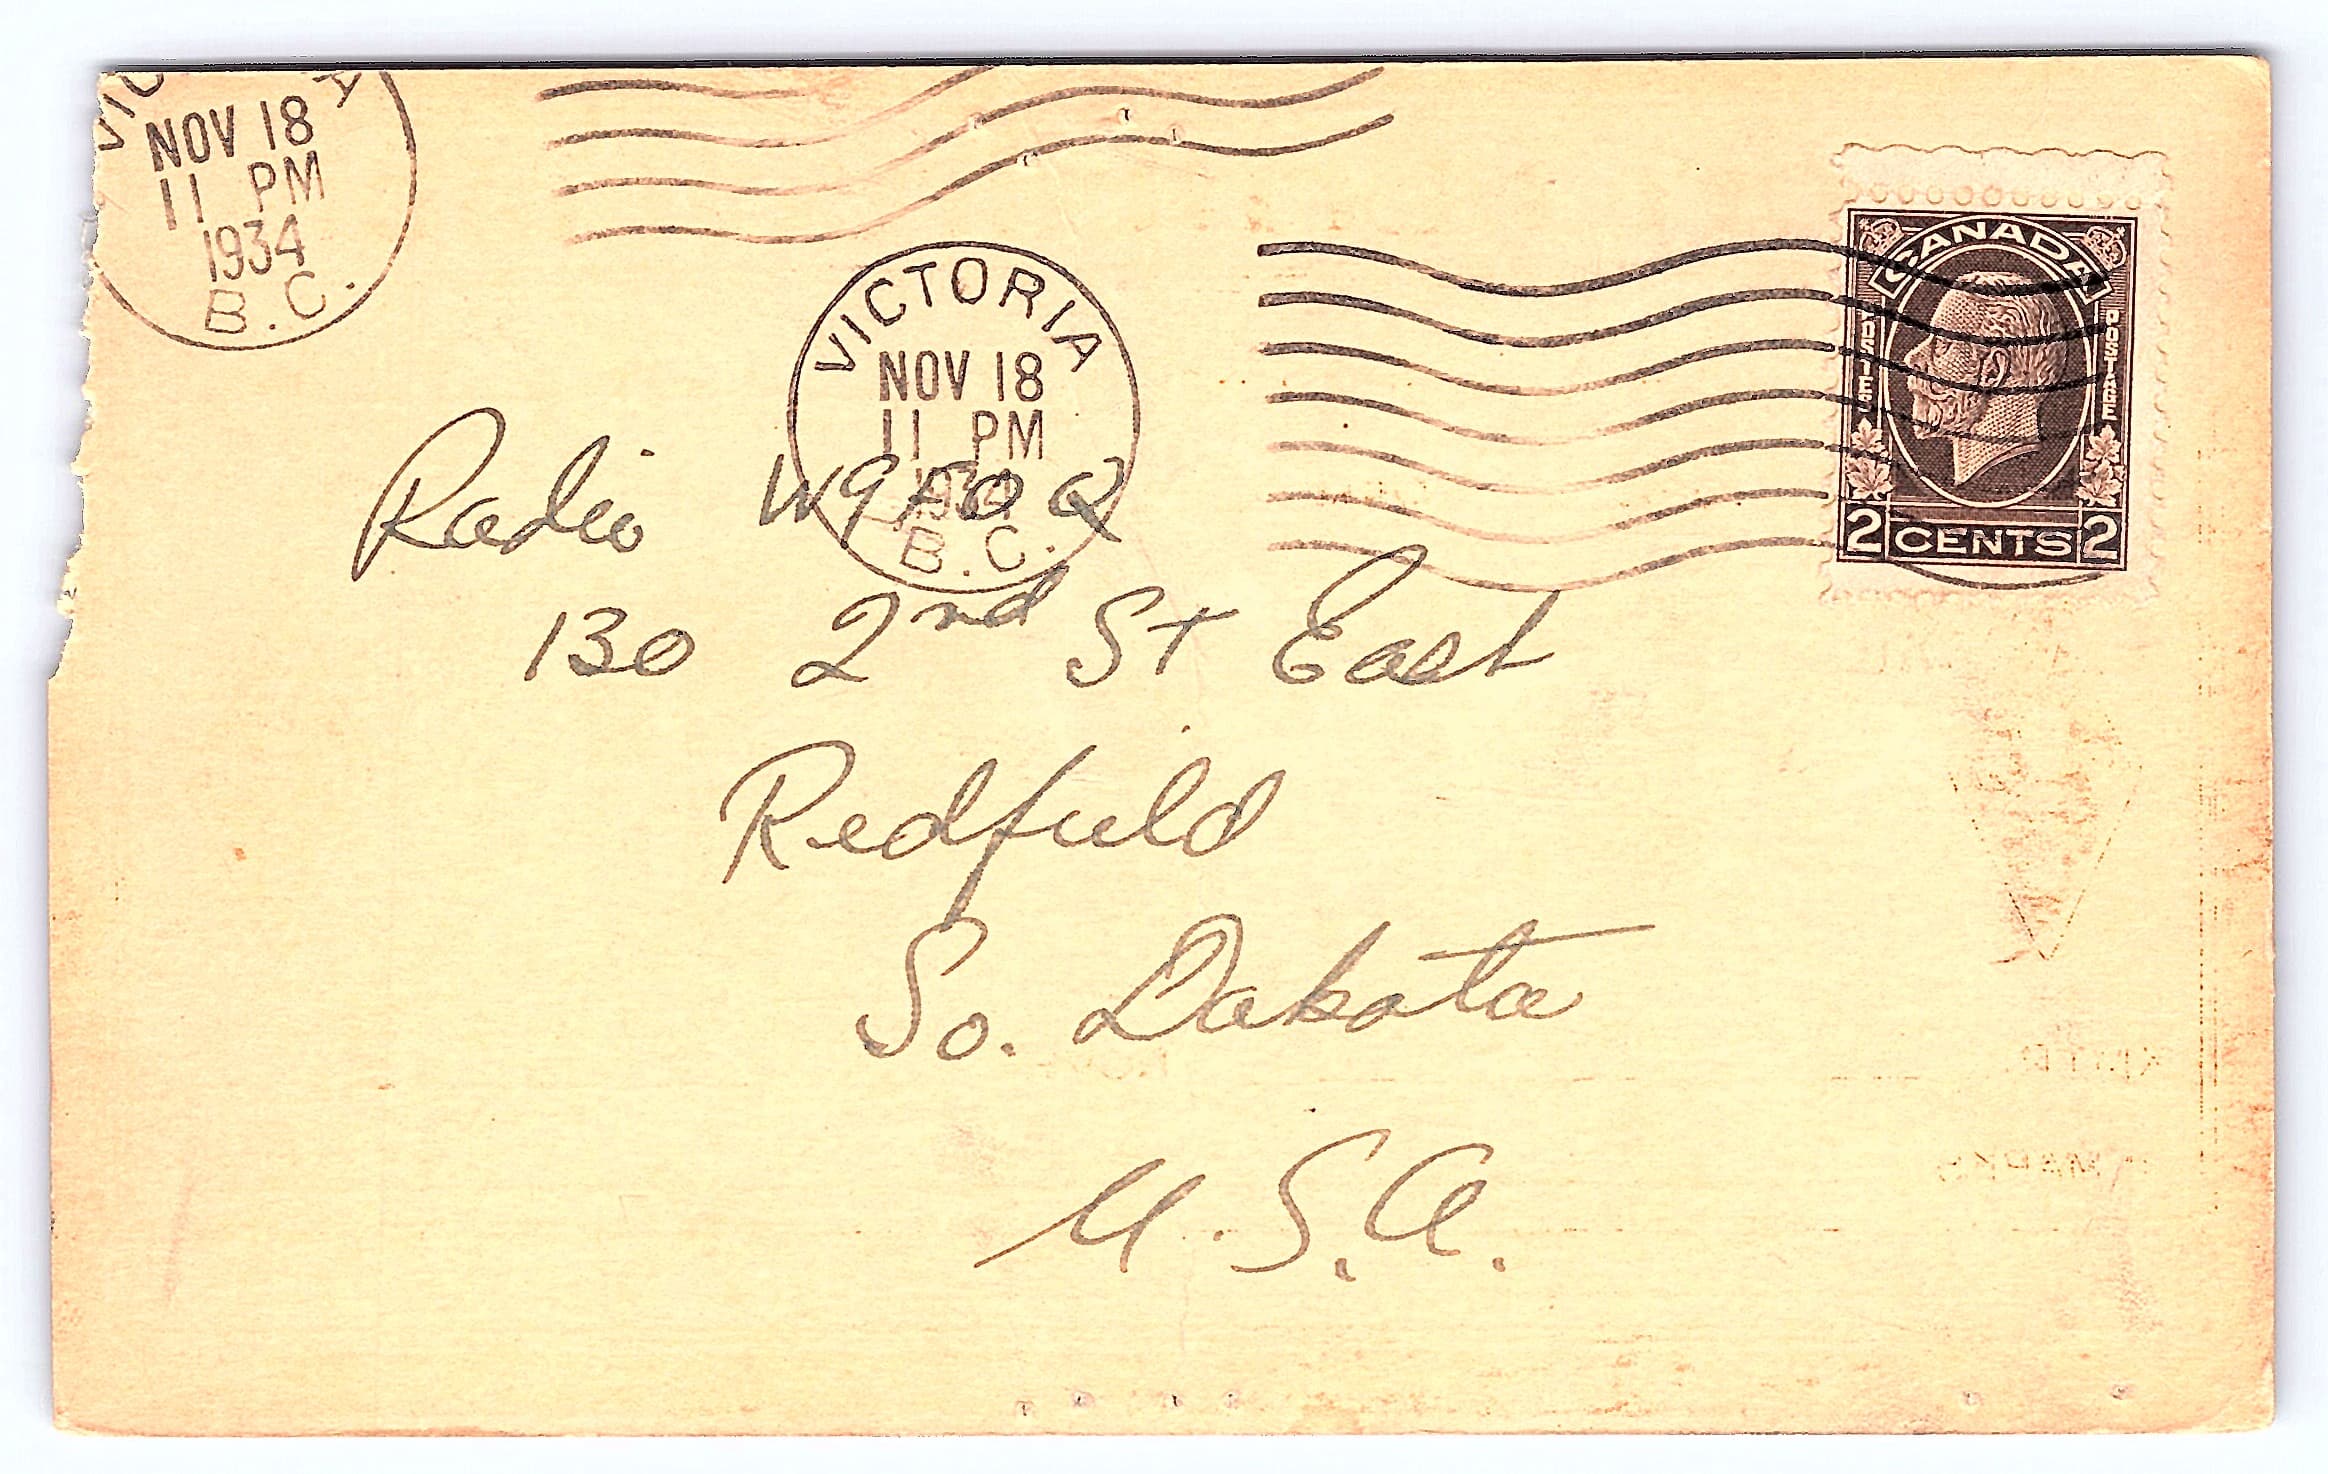 NOV 18
11 PM
1934
B.C.
VICTORIA
NOV 18
11 PM
1934
B.C.
CANADA
POSTES POSTAGE
2 CENTS 2
Radio
130 2nd St East
Redfield
So. Dakota
U.S.A.